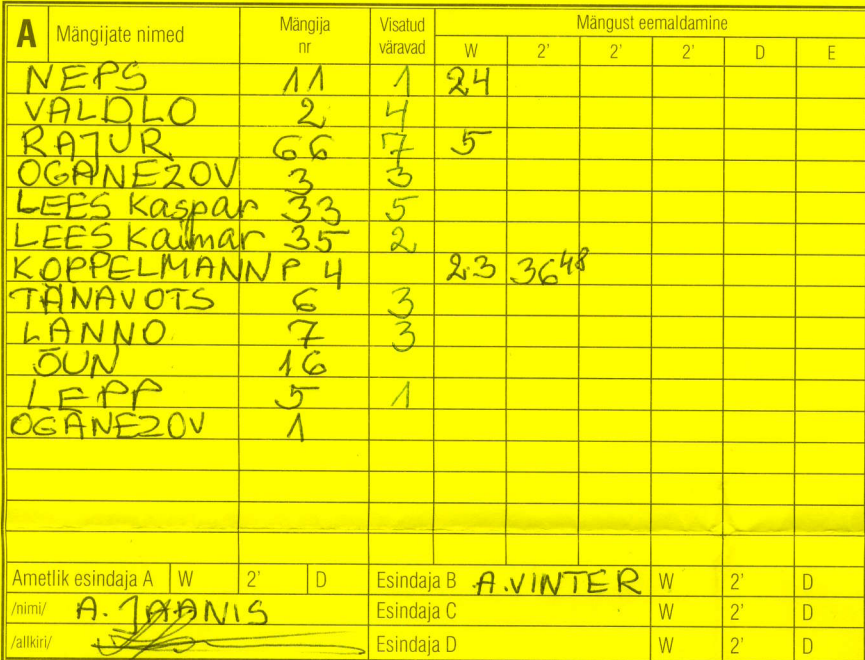 A Mängijate nimed Mängija nr Visatud väravad Mängust eemaldamine
W 2' 2' 2' D E
NEPS 11 1 24
VALDLO 2 4
RAJUR 66 7 5
OGANEZOV 3 3
LEES Kaspar 33 5
LEES Kaimar 35 2
KOPPELMANN P 4 23 36 48
TÄNAVOTS 6 3
LANNO 7 3
ÕUN 16
LEPP 5 1
OGANEZOV 1
Ametlik esindaja A W 2' D Esindaja B A.VINTER W 2' D
/nimi/ A. JAANIS Esindaja C W 2' D
/allkiri/ Esindaja D W 2' D